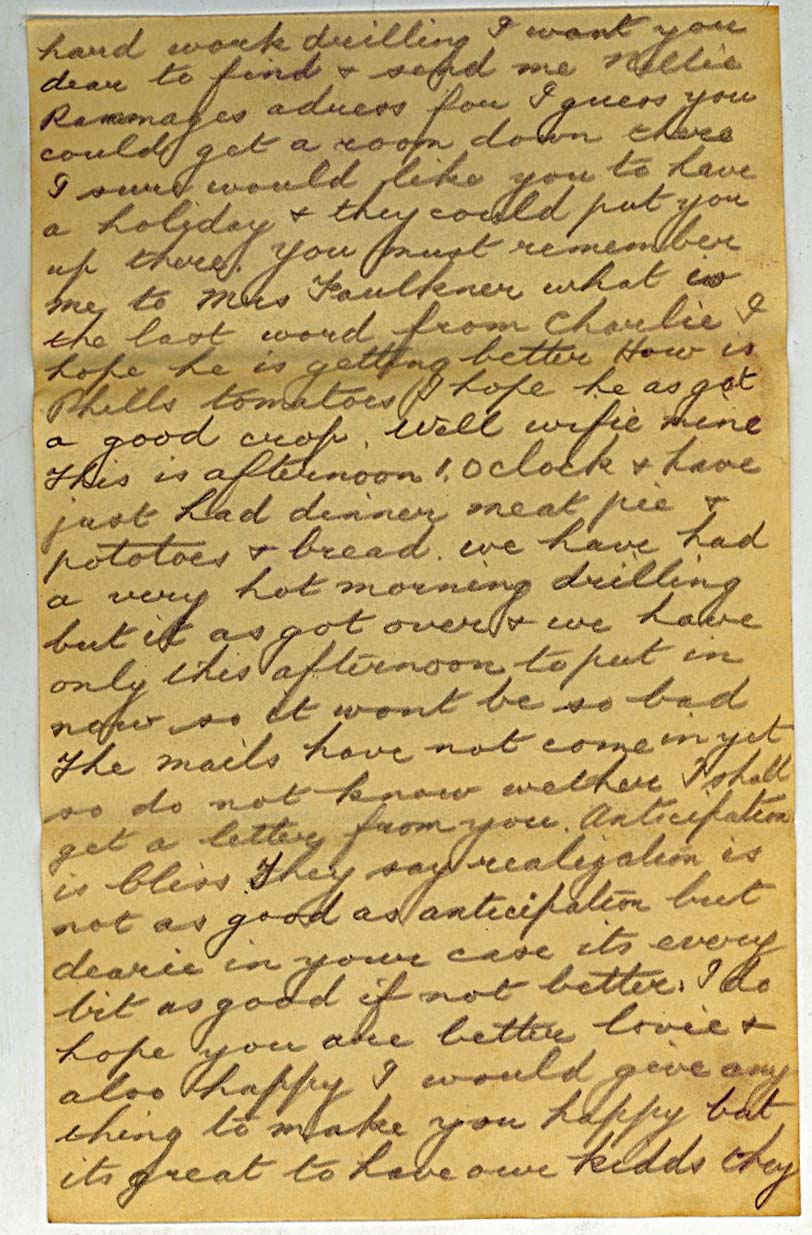 hard work drilling I want you
dear to find & send me Nellie
Rammages adress for I guess you
could get a room down there
I sure would like you to have
a holiday & they could put you
up there. you must remember
me to Mrs Faulkner what is
the last word from Charlie I
hope he is getting better How is
Phills tomatoes I hope he as got
a good crop. Well wifie mine
This is afternoon 1.Oclock & have
just had dinner meat pie &
pototoes & bread. we have had
a very hot morning drilling
but it as got over & we have
only this afternoon to put in
now so it wont be so bad
The mails have not come in yet
so do not know wether I shall
get a letter from you. Anticipation
is bliss They say realization is
not as good as anticipation but
dearie in your case its every
bit as good if not better. I do
hope you are better lovie &
also happy I would give any
thing to make you happy but
its great to have our kidds they